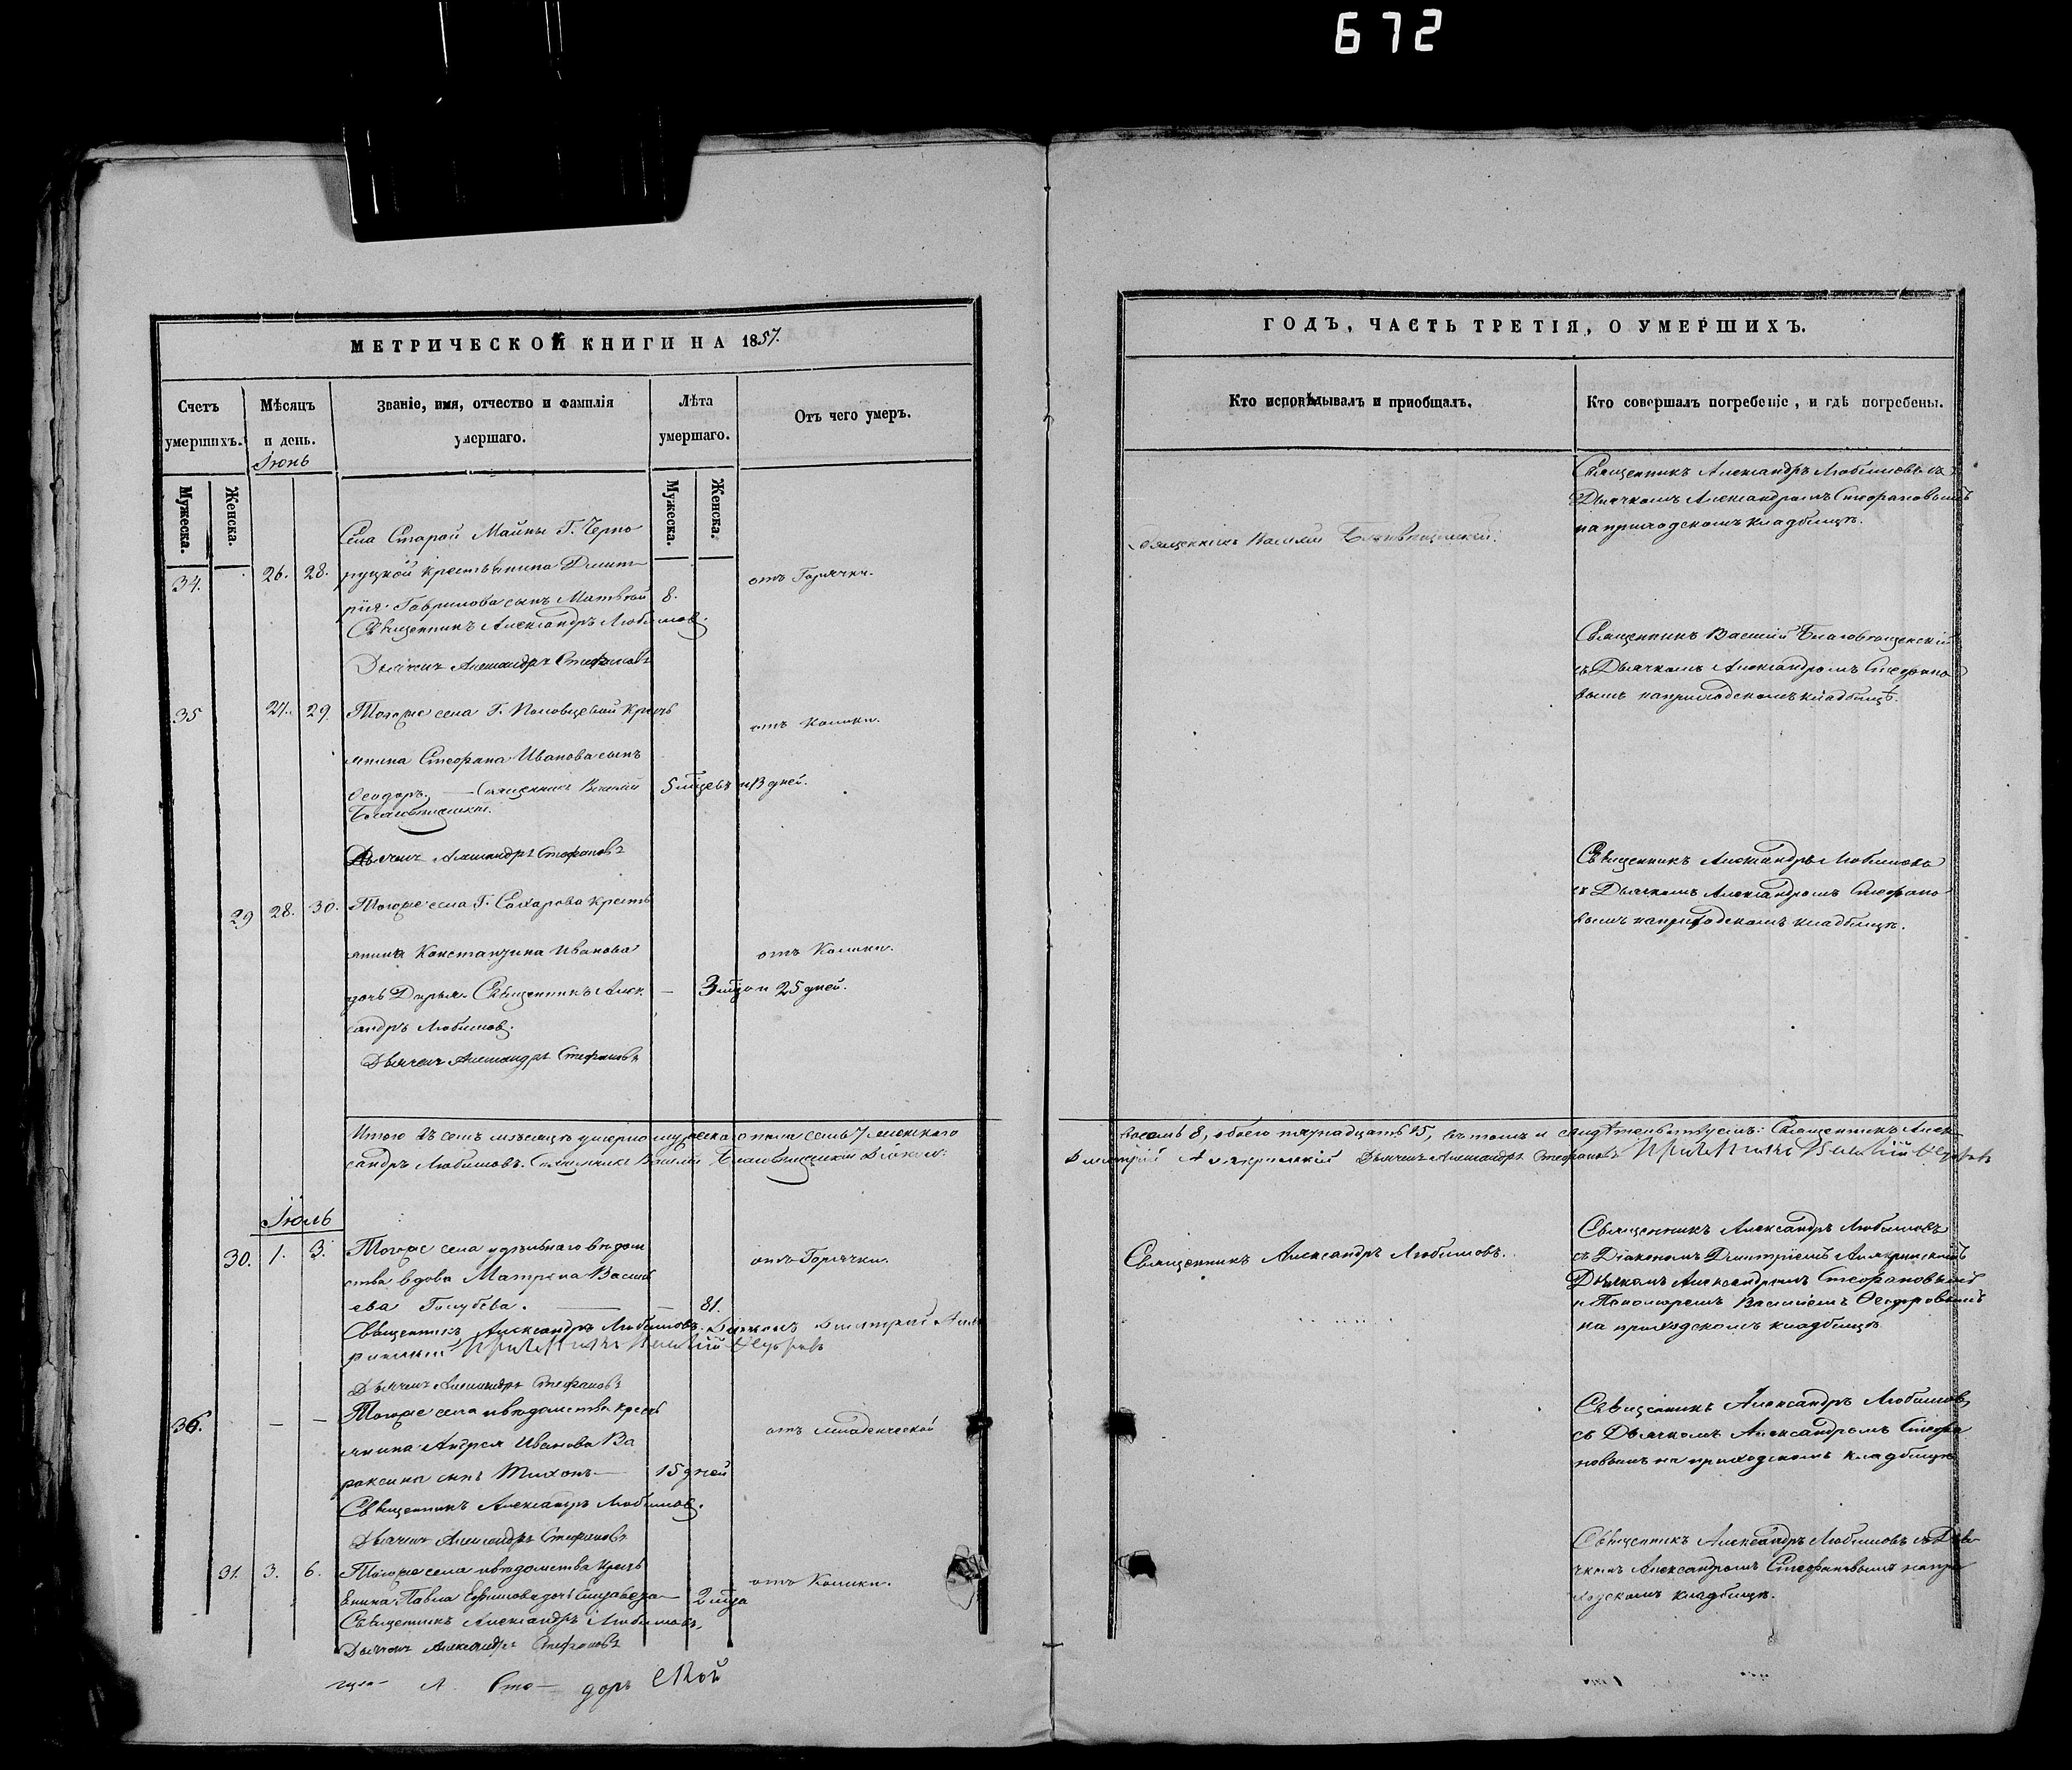 672
МЕТРИЧЕСКОЙ КНИГИ НА 1857.
Счетъ умершихъ.
Мужеска.
Женска.
Мѣсяцъ и день.
Іюнь
Званіе, имя, отчество и фамилія умершаго.
Лѣта умершаго.
Мужеска.
Женска.
Отъ чего умеръ.
34.
26. 28.
Села Старой Майны Г. Черно
руцкой крестьянина Дмит
рія Гаврилова сынъ Матвей 8.
отъ Горячки.
Священникъ Александръ Любимовъ.
Дьячекъ Александръ Стефановъ
35
27. 29.
Тогоже села Г. Половцевой кресть
янина Стефана Иванова сынъ
Ѳеодоръ. — Священникъ Василій 5 мцевъ и 13 дней.
отъ Колики.
Благовѣщенскій.
Дьячекъ Александръ Стефановъ
29 28. 30.
Тогоже села Г. Сахарова кресть
янина Константина Иванова
отъ Колики.
дочь Дарья. Священникъ Алек — 3 мца и 25 дней.
сандръ Любимовъ.
Дьячекъ Александръ Стефановъ
Итого въ семъ мѣсяцѣ умерло мужеска пола семь 7 женскаго
сандръ Любимовъ. Священникъ Василій Благовѣщенскій Діаконъ
Іюль
30. 1. 3.
Тогоже села удѣльнаго вѣдом
ства вдова Матрена Василь
ева Голубева. — — 81.
отъ Горячки.
Священникъ Александръ Любимовъ. Діаконъ Дмитрій
Василій Ѳедоровъ
Дьячекъ Александръ Стефановъ
36. — —
Тогоже села и вѣдомства кресть
янина Андрея Иванова Ва
раксина сынъ Тихонъ — 15 дней
отъ младенческой
Священникъ Александръ Любимовъ.
Дьячекъ Александръ Стефановъ
31. 3. 6.
Тогоже села и вѣдомства кресть
янина Павла Ефимова дочь Елизавета — 2 мца
отъ Колики.
Священникъ Александръ Любимовъ.
Дьячекъ Александръ Стефановъ
ГОДЪ, ЧАСТЬ ТРЕТІЯ, О УМЕРШИХЪ.
Кто исповѣдывалъ и приобщалъ.
Кто совершалъ погребеніе, и гдѣ погребены.
Священникъ Василій Благовѣщенскій.
Священникъ Александръ Любимовъ съ
Дьячкомъ Александромъ Стефановымъ
на приходскомъ кладбищѣ.
Священникъ Василій Благовѣщенскій
съ Дьячкомъ Александромъ Стефано
вымъ на приходскомъ кладбищѣ.
Священникъ Александръ Любимовъ
съ Дьячкомъ Александромъ Стефано
вымъ на приходскомъ кладбищѣ.
восемь 8, обоего пятнадцать 15, въ томъ и свидѣтельствуемъ: Священникъ Алек
Дмитрій Дьячекъ Александръ Стефановъ Василій Ѳедоровъ
Священникъ Александръ Любимовъ.
Священникъ Александръ Любимовъ
съ Діакономъ Дмитріемъ
Дьячкомъ Александромъ Стефановымъ
и Пономаремъ Василіемъ Ѳедоровымъ
на приходскомъ кладбищѣ.
Священникъ Александръ Любимовъ
съ Дьячкомъ Александромъ Стефа
новымъ на приходскомъ кладбищѣ
Священникъ Александръ Любимовъ съ Дья
чкомъ Александромъ Стефановымъ на при
ходскомъ кладбищѣ.